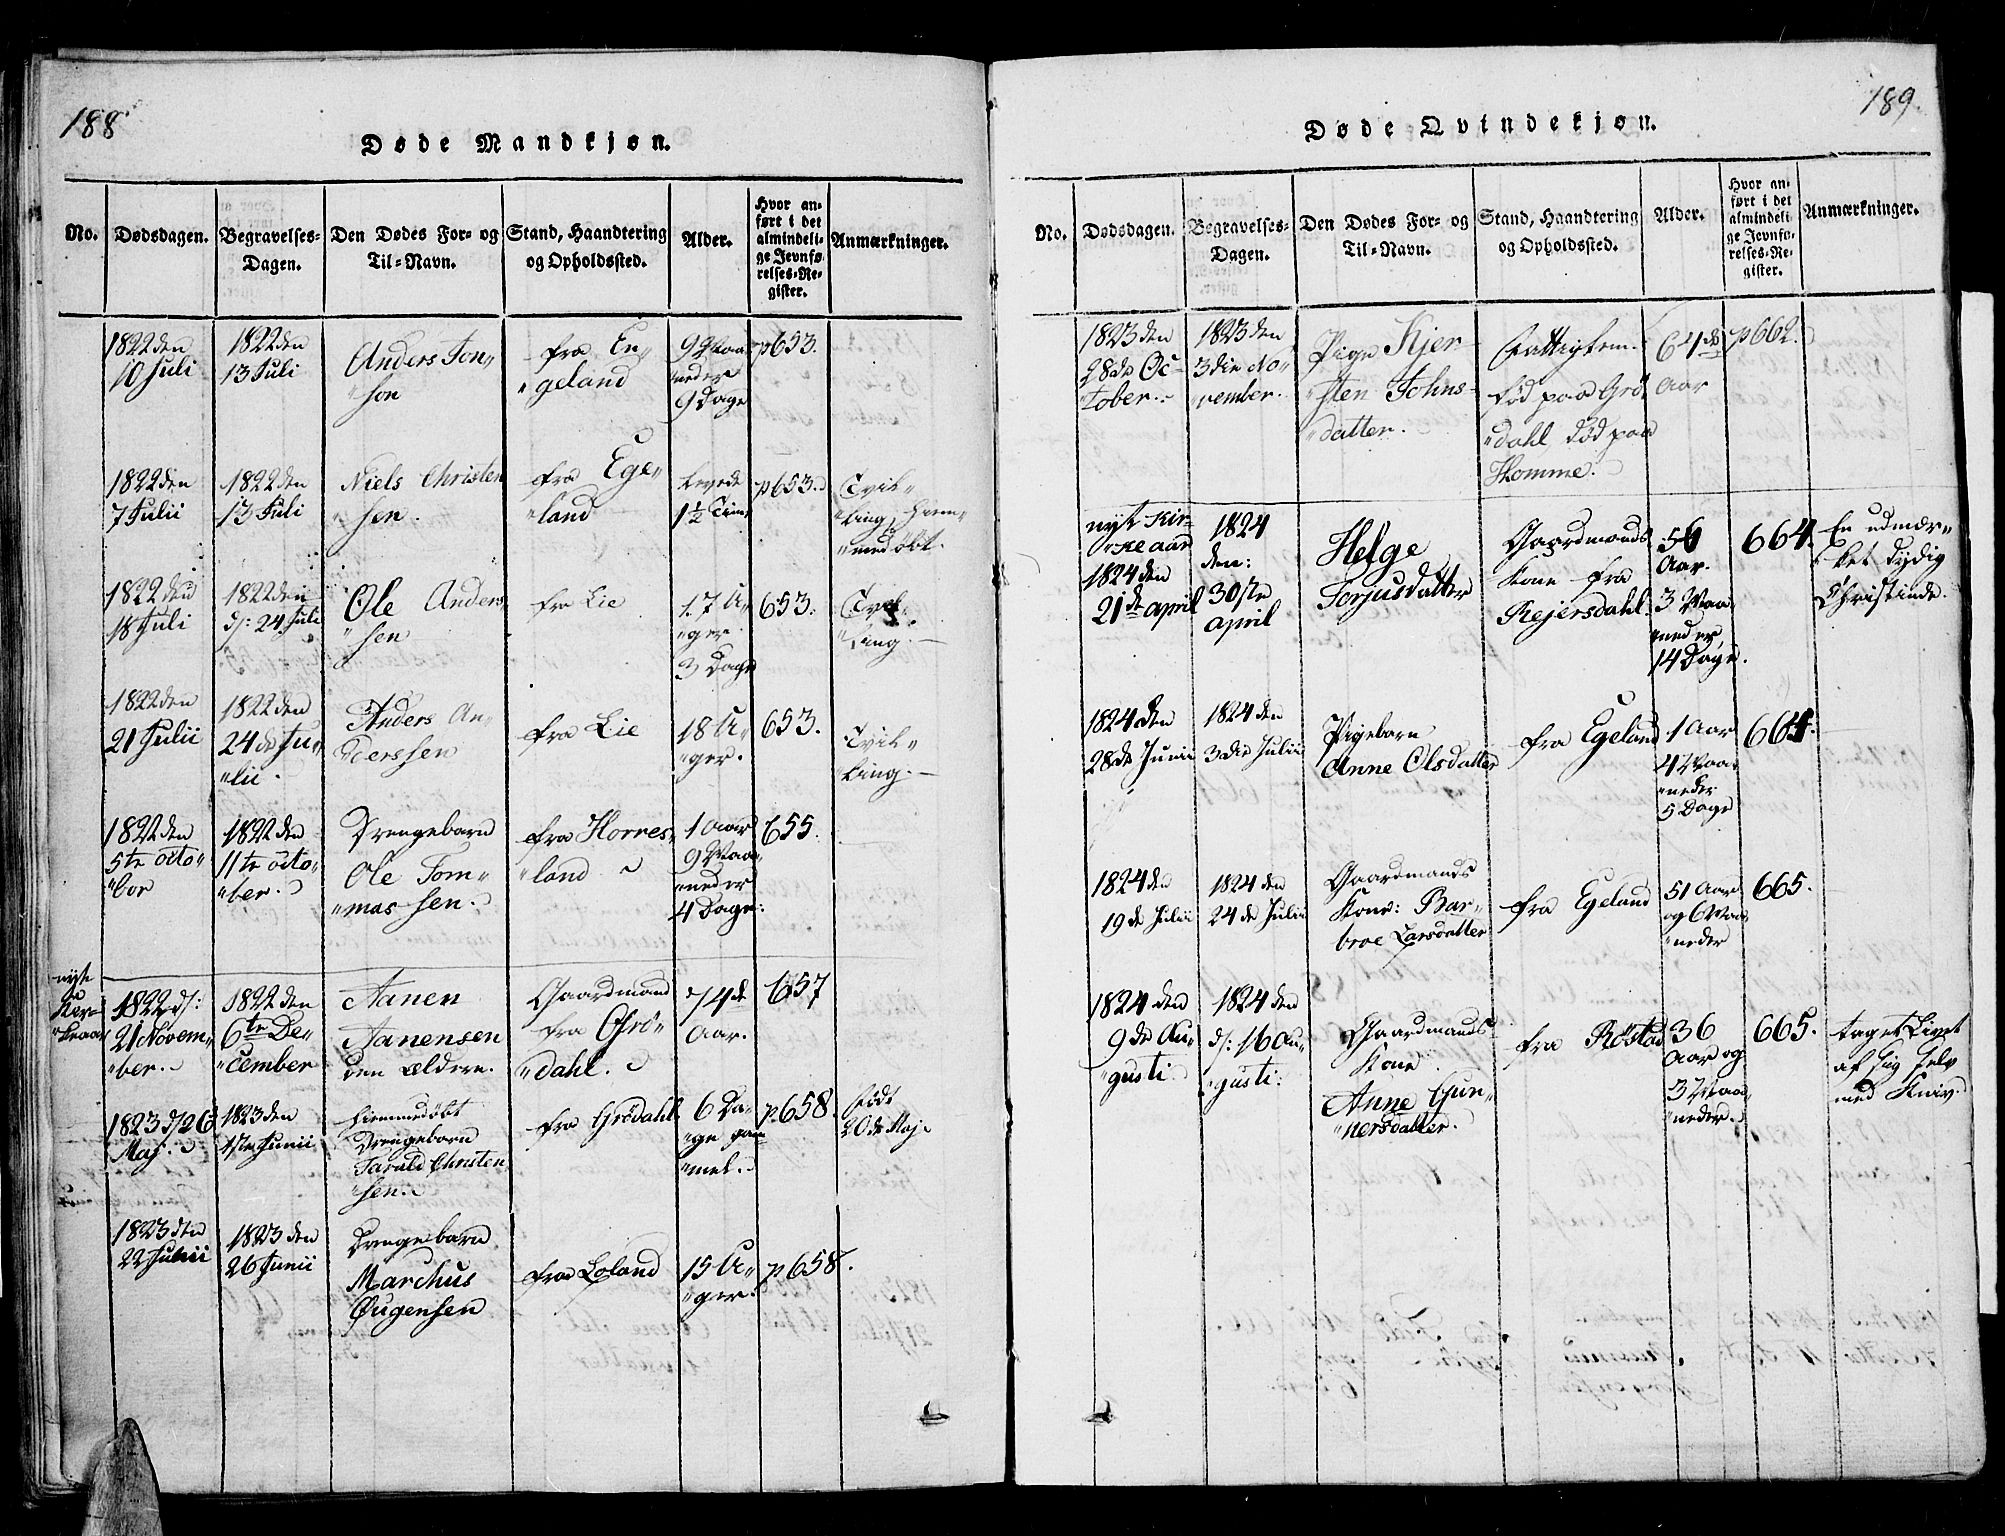 188
Døde Mandkjøn.
No.
Dødsdagen.
Begravelses-
Dagen.
Den Dødes For- og
Til-Navn.
Stand, Haandtering
og Opholdssted.
Alder.
Hvor an-
ført i det
almindeli-
ge Jevnfø-
relses-Re-
gister.
Anmærkninger.
1822 den
10 Juli
1822 den
13 Juli
Anders Jon-
"son
fra En-
"geland
9 Maa-
"neder
9 Dage
p653.
1822 den
7 Julii
1822 den
13 Juli
Niels Christen
"sen.
fra Ege-
"land
Levede
1½ Time
p653.
Tvil-
"ling, hiem-
"medøbt.
1822 den
18 Juli
1822 den
d: 24 Juli
Ole Anders
"sen
fra Lie
17 U-
"ger
3 Dage
653.
Tvil-
"ling.
1822 den
21 Julii
1822 den
24 de Ju-
"lii.
Anders An-
"derssen
fra Lie
18 U-
"ger.
653.
Tvil-
"ling.
1822 den
5te octo-
"ber
1822 den
11te octo-
"ber.
Drengebarn
Ole Tom-
"massen.
fra Horres-
"land
1 Aar
9 Maa-
"neder
4 Dage.
655.
nyt
Kir-
"keaar
1822 d:
21 Novem-
"ber.
1822 den
6te De-
"cember
Aanen
Aanensen
den Ældere.
Gaardmand
fra Grö-
"dahl.
74de
Aar.
657
1823 d 26
Maj.
1823 den
1ste Junii
Hiemmedøbt
Drengebarn
Tarald Christen
"sen.
fra Grödahl
6 Da-
"ge gam
"mel.
p658.
født
20de Maj.
1823 den
22 Junii
1823 den
26 Junii
Drengebarn
Marchus
Øugensen
fra Loland
15 U-
"ger.
p658.
189.
Døde Qvindekjøn.
No.
Dødsdagen.
Begravelses-
Dagen.
Den Dødes For- og
Til-Navn.
Stand, Haandtering
og Opholdssted.
Alder.
Hvor an-
ført i det
almindeli-
ge Jevnfø-
relses-Re-
gister.
Anmærkninger.
1823 den
28de Oc-
"tober.
1823 den
3die No-
"vember.
Pige Kjer-
"sten Johns-
datter.
Fattiglem.
født paa Grö
"dahl, død paa
Homme.
61de
Aar
p662.
nyt Kir-
"keaar
1824 den
21de april
1824
den:
30ste
april
Helge
Torjusdatter
Gaardmands
Kone fra
Rejersdahl.
56
Aar.
3 Maa
"neder,
14 Dage.
664.
En udmær-
"ket dydig
Christinde.
1824 den
28de Junii
1824 den
3die Julii
Pigebarn
Anne Olsdatter
fra Egeland
1 Aar
4 Maa-
"neder
5 Dage
664.
1824 den
19de Julii
1824 den
24de Julii
Gaardmands
Kone: Bar-
broe Larsdatter
fra Egeland
51 Aar
og 6 Maa
"neder
665.
1824 den
9de Au-
"gusti
1824 den
d: 16 Au-
"gusti:
Gaardmands-
Kone
Anne Gun-
"nersdatter.
fra Röstad
36
Aar og
3 Maa-
"neder.
665.
taget Livet
af sig selv
med Kniv.